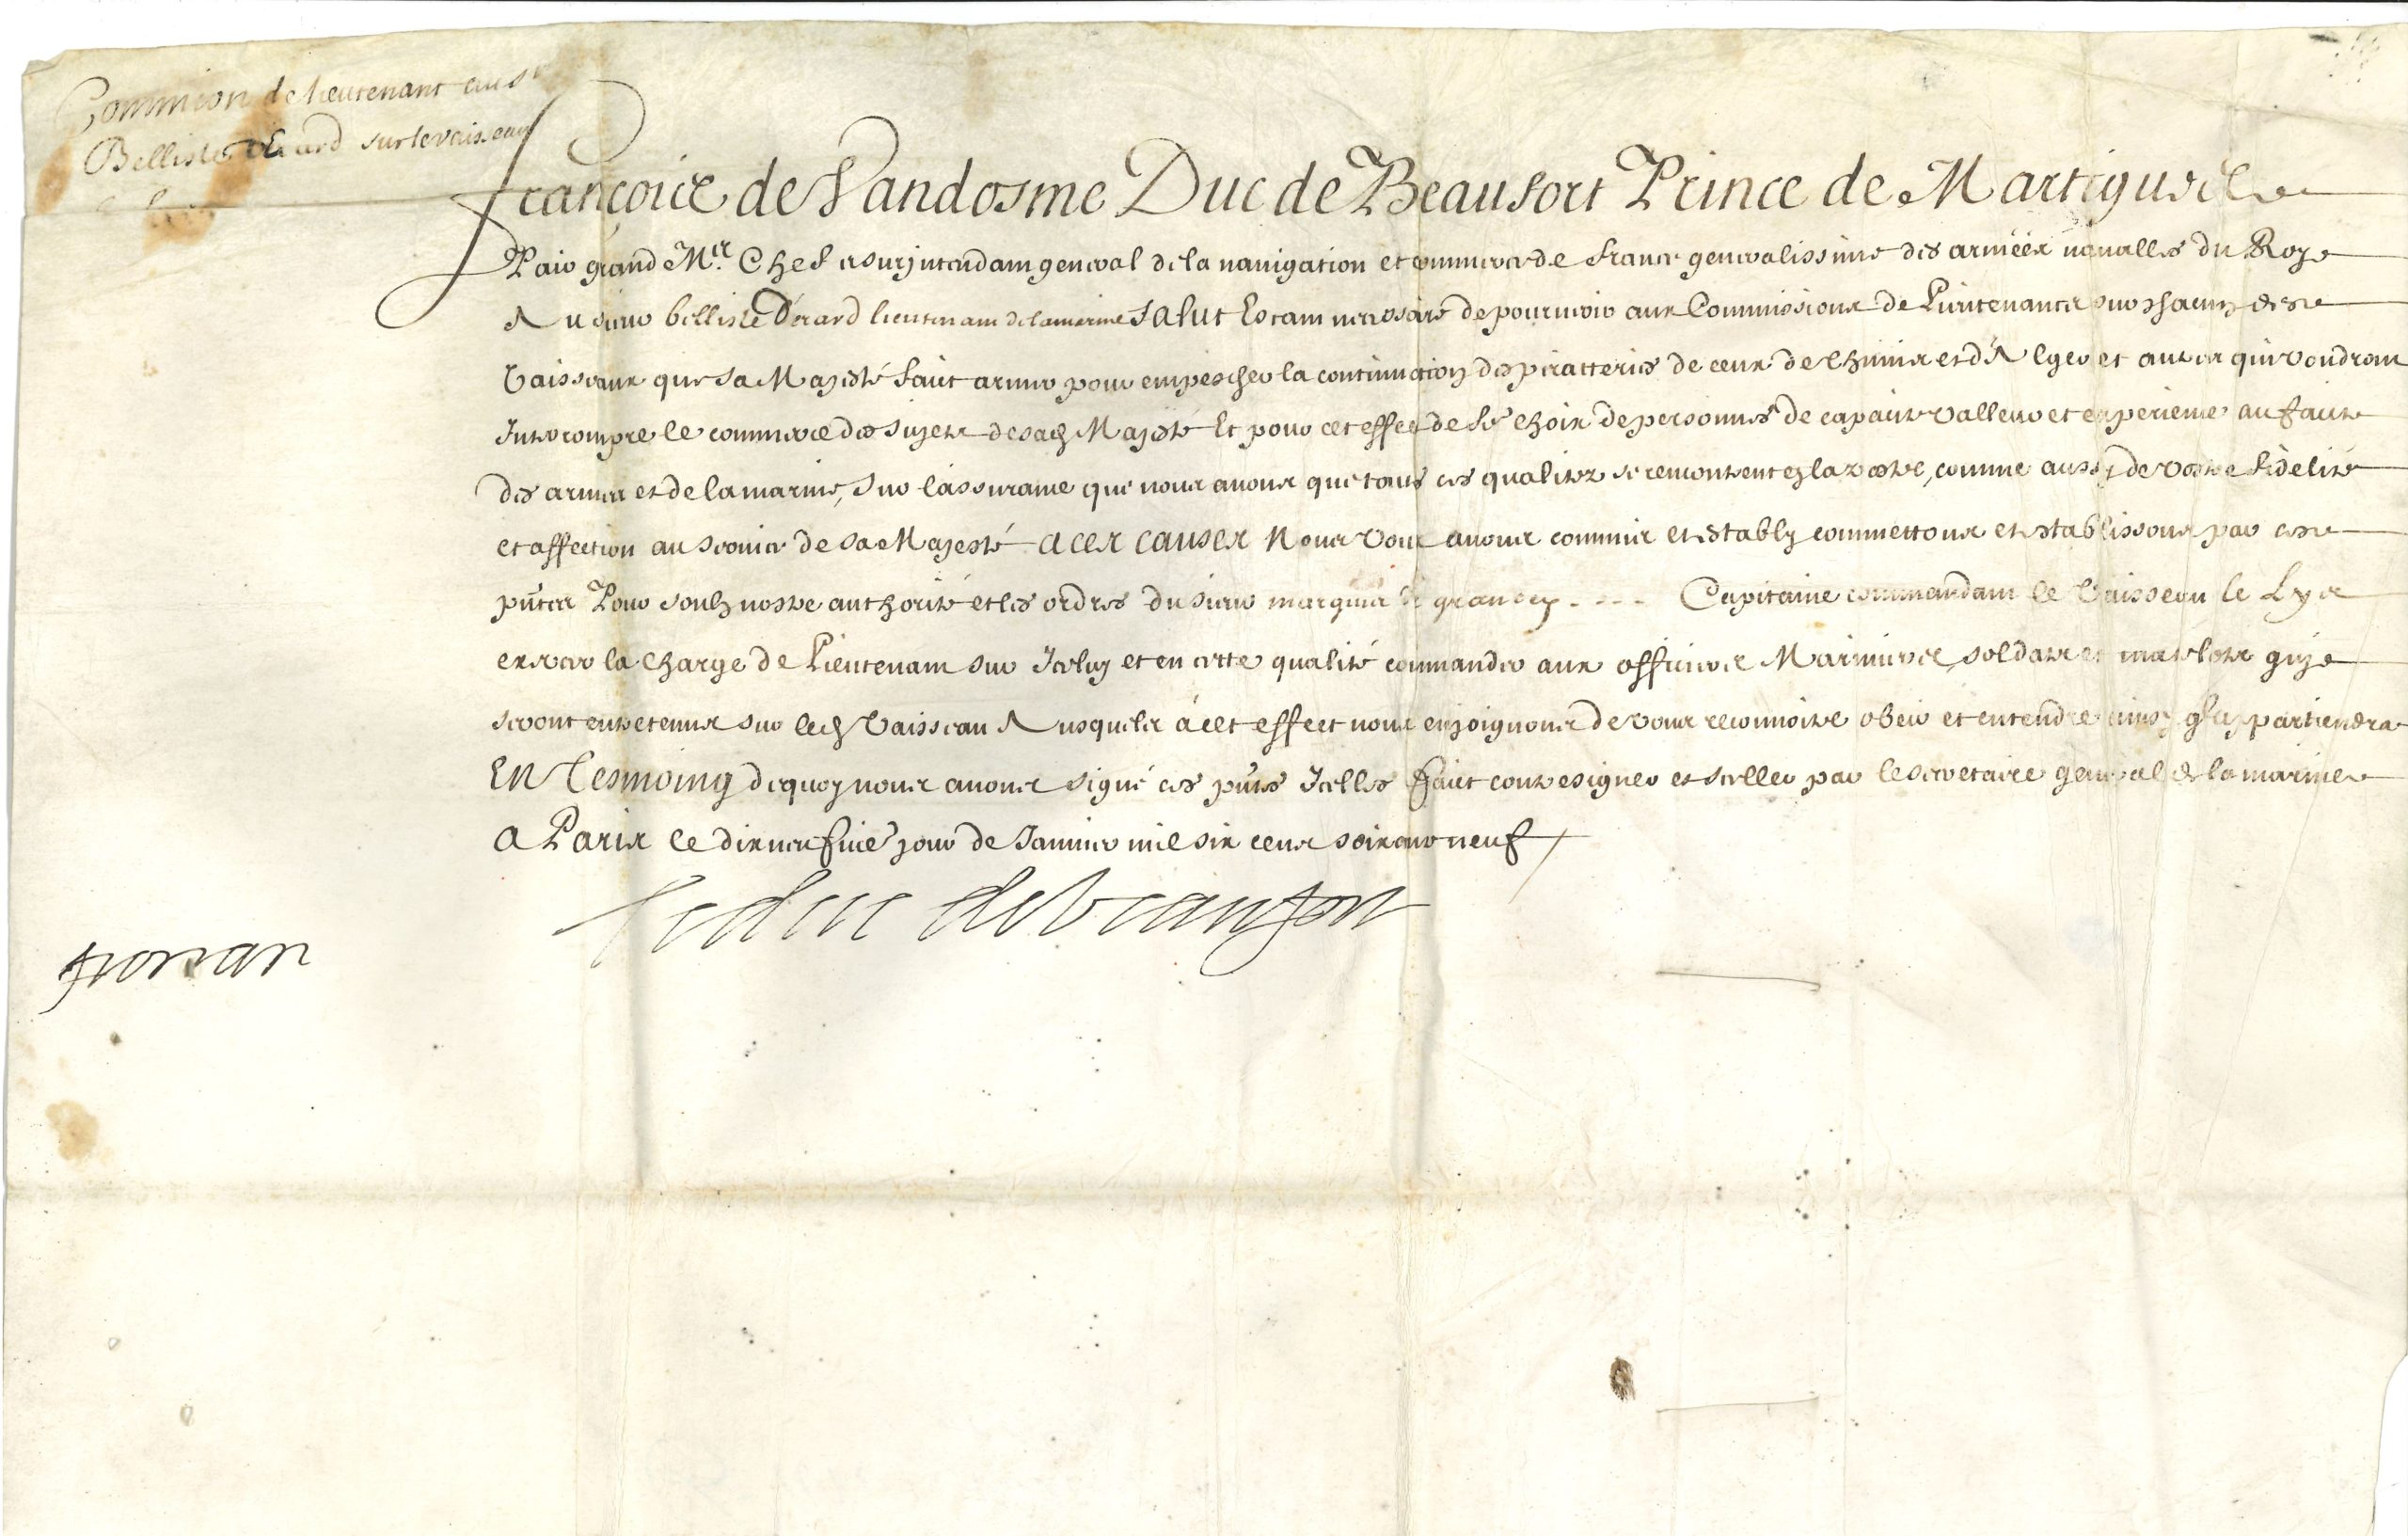 Commicon de lieutenant au Sr
Bellisle Erard sur le vaisseau
françois de Vandosme Duc de Beaufort Prince de Martigues
Pair grand Mre Chef et surjntendant general de la nauigation et commerce de france generalissime des armées naualles du Roy
Au sieur bellisle Erard lieutenant de la marine Salut Estant necessaire de pouruoir aux Commissions de Lieutenants sur chacun des
Vaisseaux que sa Majesté faict armer pour empescher la continuation des piratteries de ceux de Thunis et d'Alger et autres qui voudront
Interrompre le commerce des sujets de sad Majesté Et pour cet effect de fre choix de personnes de capacité valleur et experience au faict
des armes et de la marine, sur l'assurance que nous auons que toutes ces qualitez se rencontrent en la vostre, comme aussy de vostre fidelité
et affection au seruice de sa Majesté A CES CAUSES Nous vous auons commis et estably commettons et establissons par ces
pñtes Pour soubz nostre authorité et les ordres du sieur marquis de grancey - - - Capitaine commandant le Vaisseau le Lys
exercer la charge de Lieutenant sur Iceluy et en cette qualité commander aux officiers Mariniers, soldats et matelots qui
seront entretenus sur led Vaisseau Ausquels à cet effect nous enjoignons de vous reconnoitre obeir et entendre ainsy qu'il appartiendra
EN Tesmoing dequoy nous auons signé ces pñtes Icelles faict contresigner et sceller par le secretaire general de la marine
A Paris le dixneufuie jour de Januier mil six cens soixante neuf
Le duc de beaufort